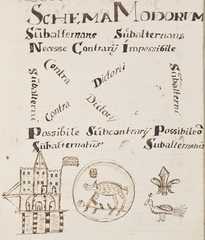 SCHEMA MODORUM
Subalternans Subalternans
Necesse Contrarij Impossibile
Subalterni Contra Dictorij Subalterni
Contra Dictorij
Possibile Subcontrarij Possibile
Subalternatus Subalternatus